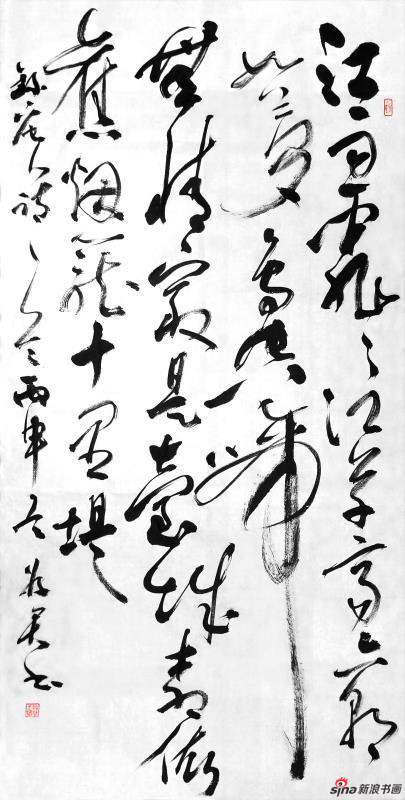 江雨霏〻江草齊六朝
如夢鳥空啼
無情最是臺城柳依
舊煙籠十里堤
錄唐人詩 丙申冬 书
sina新浪书画